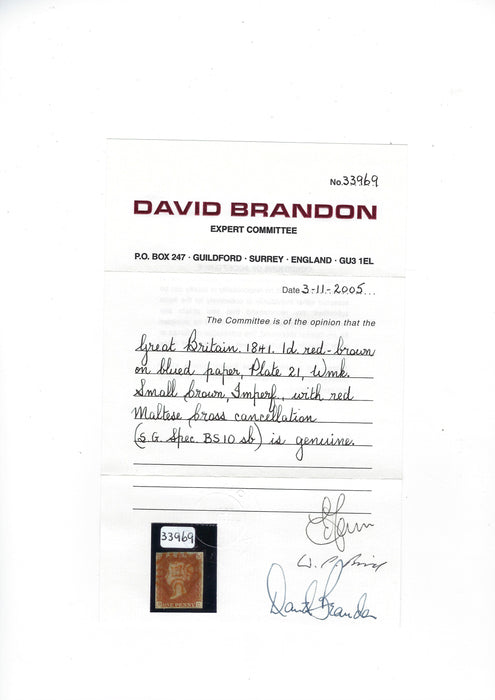 No. 33969
DAVID BRANDON
EXPERT COMMITTEE
P.O. BOX 247 · GUILDFORD · SURREY · ENGLAND · GU3 1EL
Date 3-11-2005...
The Committee is of the opinion that the
Great Britain, 1841. 1d. red-brown
on blued paper, Plate 21, Wmk.
Small Crown, Imperf., with red
Maltese Cross cancellation
(S.G. Spec. BS10 sb) is genuine.
33969
ONE PENNY
David Brandon